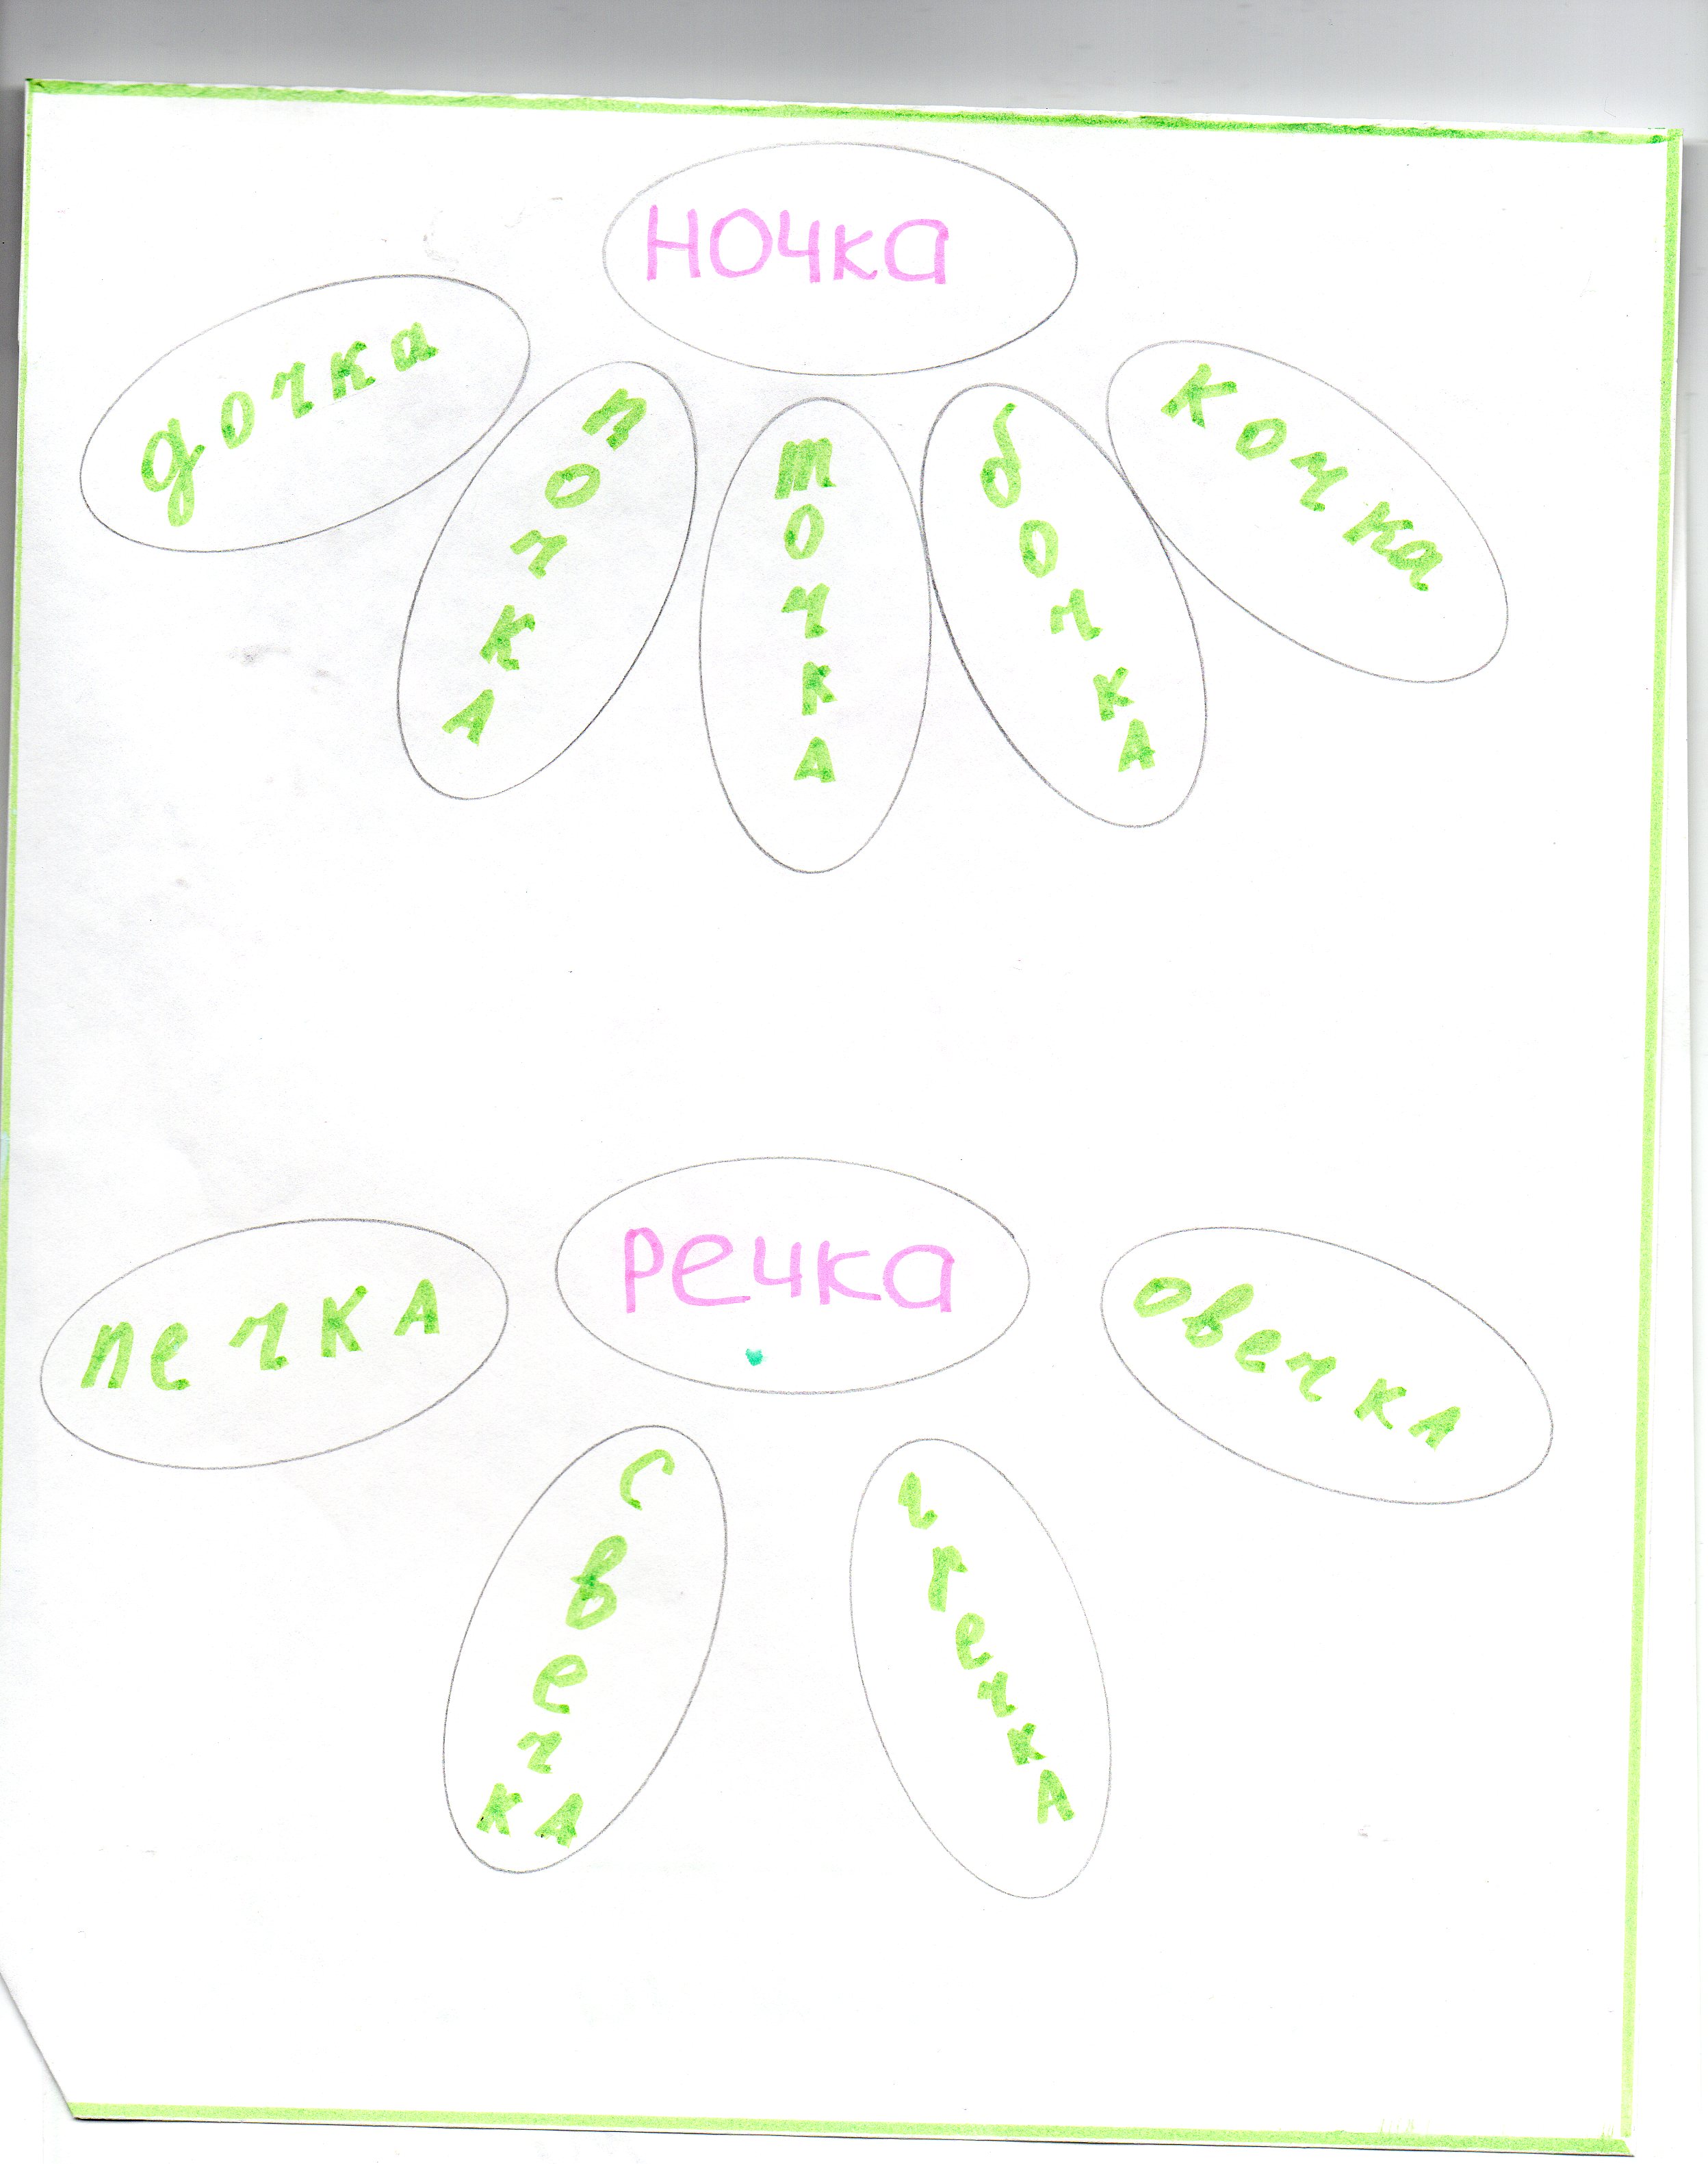 ночка
дочка
почка
точка
бочка
кочка
речка
печка
свечка
гречка
овечка